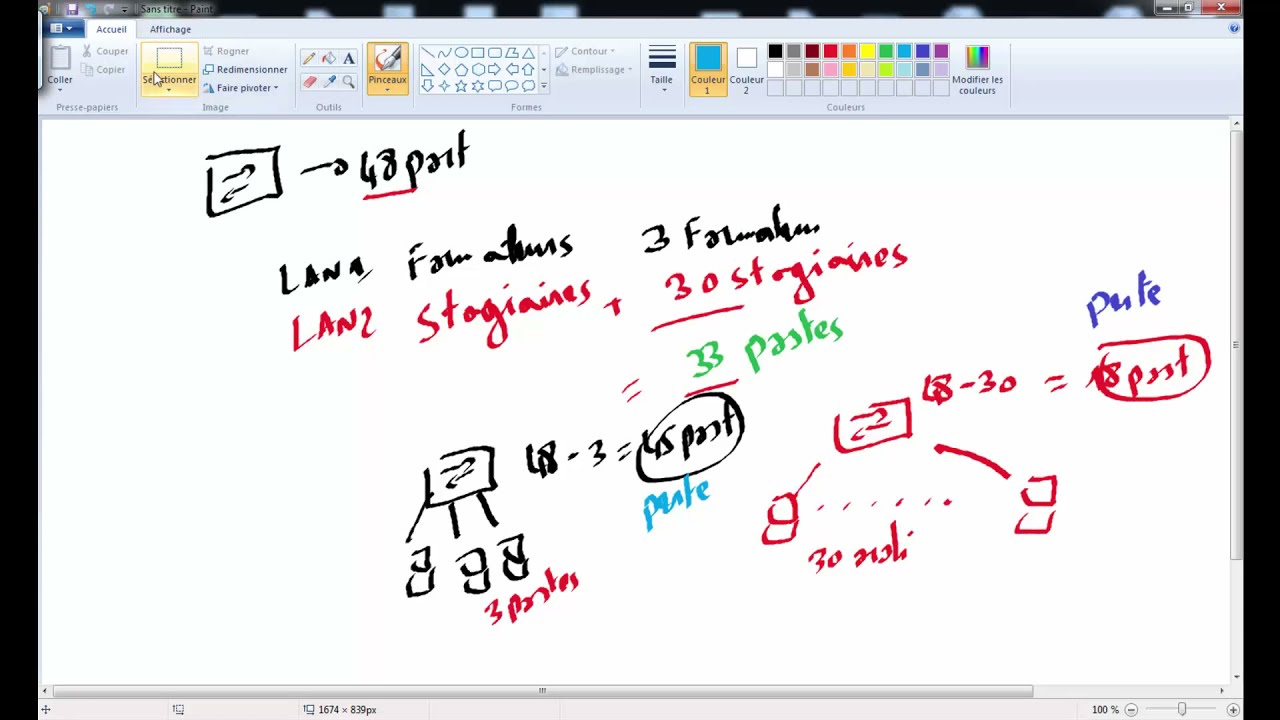 Sans titre - Paint
Accueil Affichage
Coller
Couper
Copier
Presse-papiers
Sélectionner
Rogner
Redimensionner
Faire pivoter
Image
Outils
Pinceaux
Formes
Contour
Remplissage
Taille
Couleur 1
Couleur 2
Modifier les couleurs
Couleurs
→ 48 port
LAN1 Formateurs 3 Formateurs
LAN2 Stagiaires + 30 stagiaires
= 33 postes
perte
48-30 = 18 port
48-3 = 45 port
perte
3 postes
30
1674 × 839px
100 %